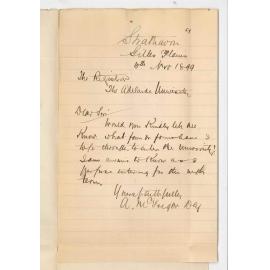 "Strathavon"
Gilles Plains
6th Nov 1899
The Registrar
The Adelaide University
Dear Sir
Would you kindly let me
know what form or forms have I
to fill to enter the University?
I am anxious to know as I
purpose entering for the next
term.
Yours faithfully
A. McGregor Day